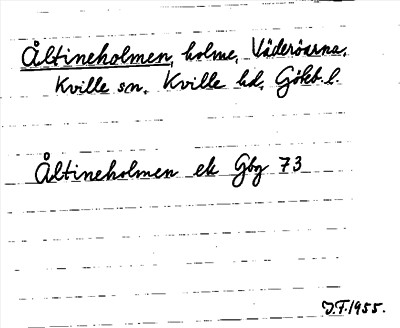 Åltineholmen, holme, Väderöarna,
Kville sn, Kville hd, Göteb. l.
Åltineholmen ek Gbg 73
J.F. 1955.